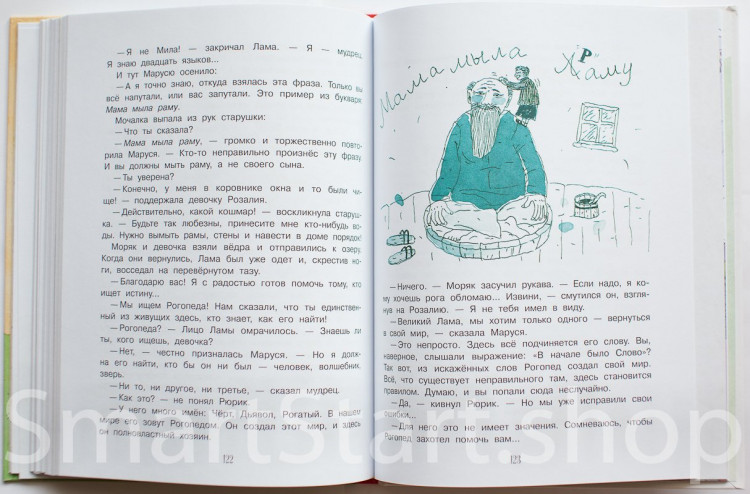 — Я не Мила! — закричал Лама. — Я — мудрец.
Я знаю двадцать языков...
И тут Марусю осенило:
— А я точно знаю, откуда взялась эта фраза. Только вы
всё напутали, или вас запутали. Это пример из букваря:
Мама мыла раму.
Мочалка выпала из рук старушки:
— Что ты сказала?
— Мама мыла раму, — громко и торжественно повто-
рила Маруся. — Кто-то неправильно произнёс эту фразу.
И вы должны мыть раму, а не своего сына.
— Ты уверена?
— Конечно, у меня в коровнике окна и то были чи-
ще! — поддержала девочку Розалия.
— Действительно, какой кошмар! — воскликнула старуш-
ка. — Будьте так любезны, принесите мне кто-нибудь во-
ды. Нужно вымыть рамы, стены и навести в доме порядок!
Моряк и девочка взяли вёдра и отправились к озеру.
Когда они вернулись, Лама был уже одет и, скрестив но-
ги, восседал на перевёрнутом тазу.
— Благодарю вас! Я с радостью готов помочь тому, кто
ищет истину...
— Мы ищем Рогопеда! Нам сказали, что ты единствен-
ный из живущих здесь, кто знает, как его найти!
— Рогопеда? — Лицо Ламы омрачилось. — Знаешь ли
ты, кого ищешь, девочка?
— Нет, — честно призналась Маруся. — Но я долж-
на его найти, кто бы он ни был — человек, волшебник,
зверь.
— Ни то, ни другое, ни третье, — сказал мудрец.
— Как это? — не понял Рюрик.
— У него много имён: Чёрт, Дьявол, Рогатый. В нашем
мире его зовут Рогопедом. Он создал этот мир, и здесь
он полновластный хозяин.
122
Мама мыла Хаму
Р
— Ничего. — Моряк засучил рукава. — Если надо, я ко-
му хочешь рога обломаю... Извини, — смутился он, взгля-
нув на Розалию. — Я не тебя имел в виду.
— Великий Лама, мы хотим только одного — вернуться
в свой мир, — сказала Маруся.
— Это непросто. Здесь всё подчиняется его слову. Вы,
наверное, слышали выражение: «В начале было Слово»?
Так вот, из искажённых слов Рогопед создал свой мир.
Всё, что существует неправильного там, здесь становится
правилом. Думаю, и вы попали сюда неслучайно.
— Да, — кивнул Рюрик. — Но мы уже исправили свои
ошибки...
— Для него это не имеет значения. Сомневаюсь, чтобы
Рогопед захотел помочь вам...
123
SmartStart.shop